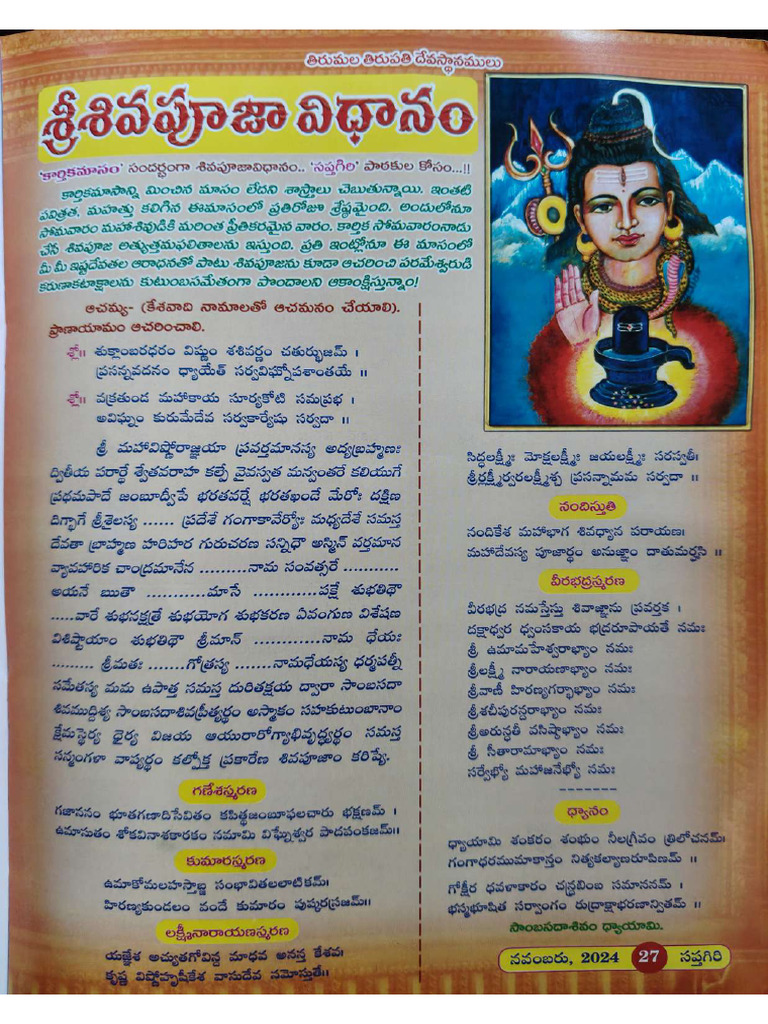 తిరుమల తిరుపతి దేవస్థానములు
శ్రీశివపూజా విధానం
'కార్తికమాసం' సందర్భంగా శివపూజావిధానం.. 'సప్తగిరి' పాఠకుల కోసం...!!
కార్తికమాసాన్ని మించిన మాసం లేదని శాస్త్రాలు చెబుతున్నాయి. ఇంతటి
పవిత్రత, మహత్తు కలిగిన ఈమాసంలో ప్రతిరోజూ శ్రేష్ఠమైంది. అందులోనూ
సోమవారం మహాశివుడికి మరింత ప్రీతికరమైన వారం. కార్తిక సోమవారంనాడు
చేసే శివపూజ అత్యుత్తమఫలితాలను ఇస్తుంది. ప్రతి ఇంట్లోనూ ఈ మాసంలో
మీ మీ ఇష్టదేవతల ఆరాధనతో పాటు శివపూజను కూడా ఆచరించి పరమేశ్వరుడి
కరుణాకటాక్షాలను కుటుంబసమేతంగా పొందాలని ఆకాంక్షిస్తున్నాం!
ఆచమ్య- (కేశవాది నామాలతో ఆచమనం చేయాలి).
ప్రాణాయామం ఆచరించాలి.
శ్లో॥ శుక్లాంబరధరం విష్ణుం శశివర్ణం చతుర్భుజమ్ ।
ప్రసన్నవదనం ధ్యాయేత్ సర్వవిఘ్నోపశాంతయే ॥
శ్లో॥ వక్రతుండ మహాకాయ సూర్యకోటి సమప్రభ ।
అవిఘ్నం కురుమేదేవ సర్వకార్యేషు సర్వదా ॥
శ్రీ మహావిష్ణోరాజ్ఞయా ప్రవర్తమానస్య అద్యబ్రహ్మణః
ద్వితీయ పరార్థే శ్వేతవరాహ కల్పే వైవస్వత మన్వంతరే కలియుగే
ప్రథమపాదే జంబూద్వీపే భరతవర్షే భరతఖండే మేరోః దక్షిణ
దిగ్భాగే శ్రీశైలస్య ...... ప్రదేశే గంగాకావేర్యోః మధ్యదేశే సమస్త
దేవతా బ్రాహ్మణ హరిహర గురుచరణ సన్నిధౌ అస్మిన్ వర్తమాన
వ్యావహారిక చాంద్రమానేన ..........నామ సంవత్సరే ............
అయనే ఋతౌ ............మాసే ..............పక్షే శుభతిథౌ
.....వారే శుభనక్షత్రే శుభయోగ శుభకరణ ఏవంగుణ విశేషణ
విశిష్టాయాం శుభతిథౌ శ్రీమాన్ ..............నామ ధేయః
......... శ్రీమతః .......గోత్రస్య ........నామధేయస్య ధర్మపత్నీ
సమేతస్య మమ ఉపాత్త సమస్త దురితక్షయ ద్వారా సాంబసదా
శివముద్దిశ్య సాంబసదాశివప్రీత్యర్థం అస్మాకం సహకుటుంబానాం
క్షేమస్థైర్య ధైర్య విజయ ఆయురారోగ్యాభివృద్ధ్యర్థం సమస్త
సన్మంగళా వాప్యర్థం కల్పోక్త ప్రకారేణ శివపూజాం కరిష్యే.
గణేశస్మరణ
గజాననం భూతగణాదిసేవితం కపిత్థజంబూఫలచారు భక్షణమ్ ।
ఉమాసుతం శోకవినాశకారకం నమామి విఘ్నేశ్వర పాదపంకజమ్॥
కుమారస్మరణ
ఉమాకోమలహస్తాబ్జ సంభావితలలాటికమ్।
హిరణ్యకుండలం వందే కుమారం పుష్కరస్రజమ్॥
లక్ష్మీనారాయణస్మరణ
యజ్ఞేశ అచ్యుతగోవిన్ద మాధవ అనన్త కేశవ।
కృష్ణ విష్ణోహృషీకేశ వాసుదేవ నమోస్తుతే॥
సిద్ధలక్ష్మీః మోక్షలక్ష్మీః జయలక్ష్మీః సరస్వతీ।
శ్రీర్లక్ష్మీర్వరలక్ష్మీశ్చ ప్రసన్నామమ సర్వదా ॥
నందిస్తుతి
నందికేశ మహాభాగ శివధ్యాన పరాయణ।
మహాదేవస్య పూజార్థం అనుజ్ఞాం దాతుమర్హసి ॥
వీరభద్రస్మరణ
వీరభద్ర నమస్తేస్తు శివాజ్ఞాను ప్రవర్తక ।
దక్షాధ్వర ధ్వంసకాయ భద్రరూపాయతే నమః
శ్రీ ఉమామహేశ్వరాభ్యాం నమః
శ్రీలక్ష్మీ నారాయణాభ్యాం నమః
శ్రీవాణీ హిరణ్యగర్భాభ్యాం నమః
శ్రీశచీపురన్దరాభ్యాం నమః
శ్రీఅరున్ధతీ వసిష్ఠాభ్యాం నమః
శ్రీ సీతారామాభ్యాం నమః
సర్వేభ్యో మహాజనేభ్యో నమః
ధ్యానం
ధ్యాయామి శంకరం శంభుం నీలగ్రీవం త్రిలోచనమ్।
గంగాధరముమాకాన్తం నిత్యకల్యాణరూపిణమ్ ॥
గోక్షీర ధవళాకారం చన్ద్రబింబ సమాననమ్ ।
భస్మభూషిత సర్వాంగం రుద్రాక్షాభరణాన్వితమ్ ॥
సాంబసదాశివం ధ్యాయామి.
నవంబరు, 2024 27 సప్తగిరి